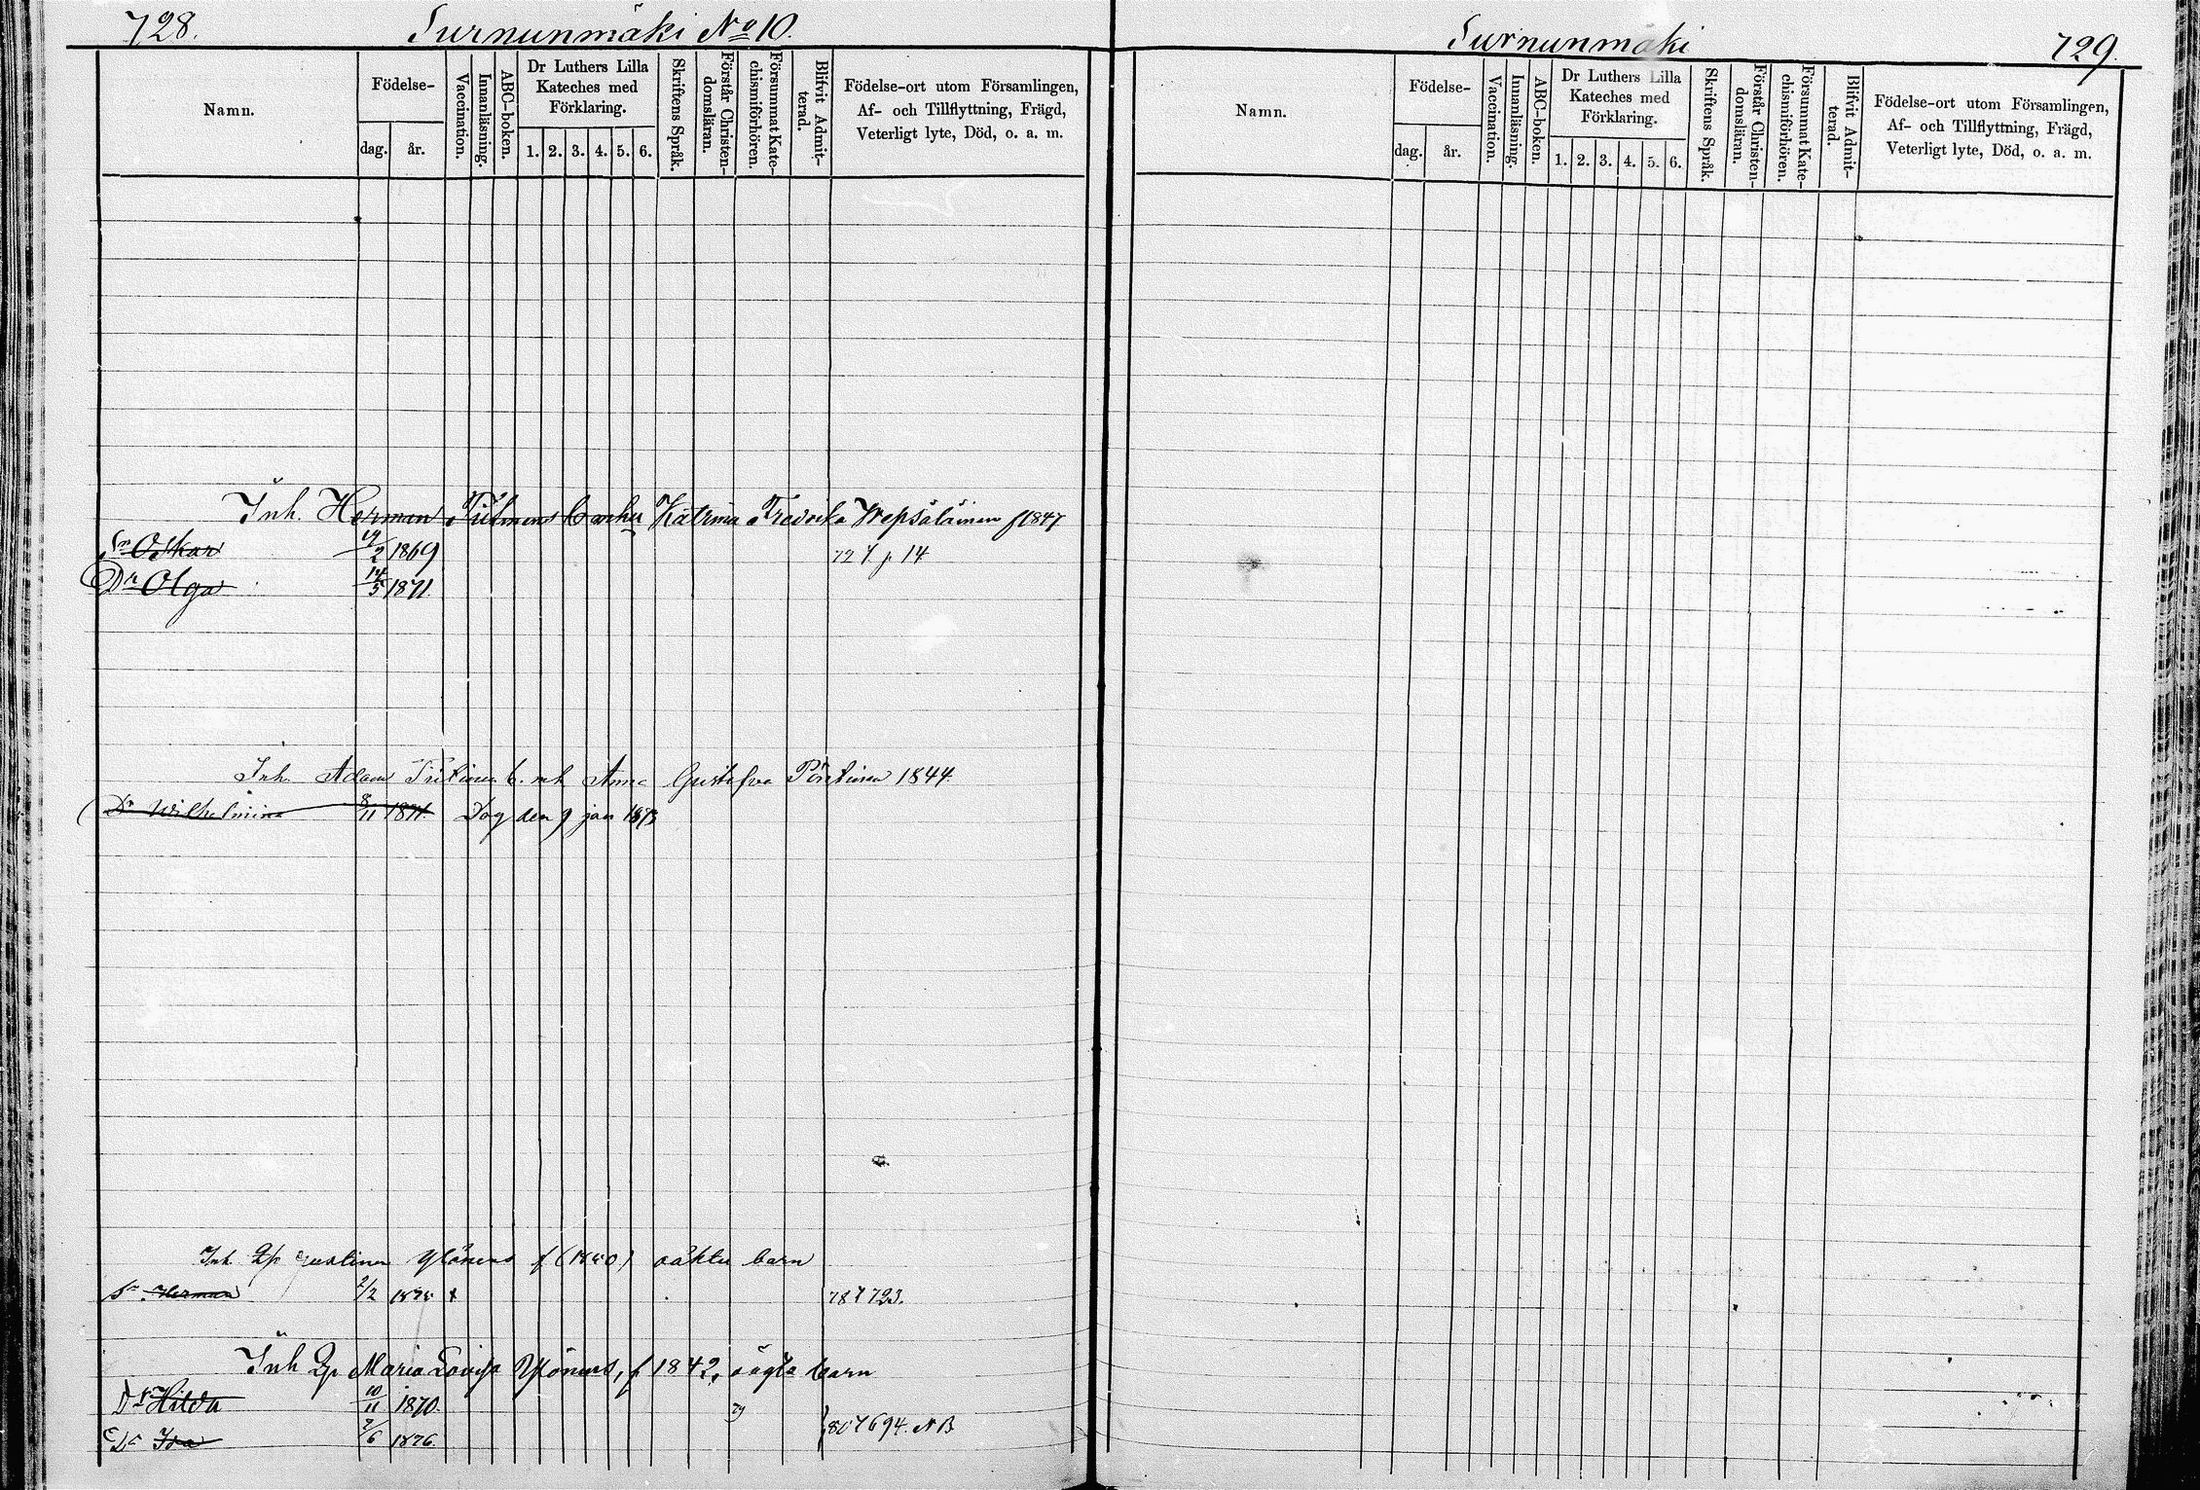 728.
Surnunmäki No 10.
Namn.
Födelse-
dag.
år.
Vaccination.
Innanläsning.
ABC-boken.
Dr Luthers Lilla
Kateches med
Förklaring.
1. 2. 3. 4. 5. 6.
Skriftens Språk.
Förstår Christen-
domsläran.
Försummat Kate-
chismiförhören.
Blifvit Admit-
terad.
Födelse-ort utom Församlingen,
Af- och Tillflyttning, Frägd,
Veterligt lyte, Död, o. a. m.
Inh. Herman Katrina Fredrika Wepsäläinen f 1847
Sn Oskar 19/2 1869 727 p 14
Dr Olga 14/5 1871.
Inh. Adam Anna Gustafva 1844.
Dr Wilhelmina 8/11 1871. Dog den 9 jan 1873
Inh. f (1850) oäkta barn
Sn Herman 2/2 1875 787 723.
Inh Maria Lovisa Ylönens, f 1842, oägta barn
Dr Hilda 10/11 1870.
Dr Ida 7/6 1876. 807 694. NB
Surnunmäki
729.
Namn.
Födelse-
dag.
år.
Vaccination.
Innanläsning.
ABC-boken.
Dr Luthers Lilla
Kateches med
Förklaring.
1. 2. 3. 4. 5. 6.
Skriftens Språk.
Förstår Christen-
domsläran.
Försummat Kate-
chismiförhören.
Blifvit Admit-
terad.
Födelse-ort utom Församlingen,
Af- och Tillflyttning, Frägd,
Veterligt lyte, Död, o. a. m.